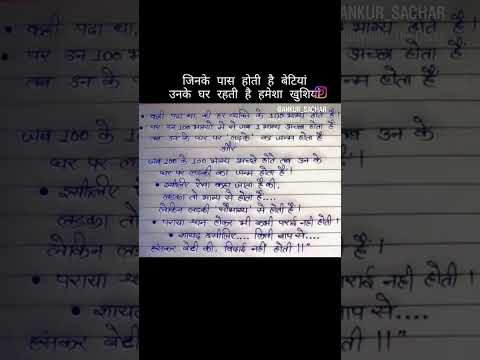 @ANKUR_SACHAR
जिनके पास होती है बेटियां
उनके घर रहती है हमेशा खुशियां
@ANKUR_SACHAR
• कहीं पढा था, की हर व्यक्ति के 100 भाग्य होते हैं।
• पर उन 100 भाग्यों में से जब 1 भाग्य अच्छा होता है
तब उन के घर पर 'लड़के' का जन्म होता है
और
जब 100 के 100 भाग्य अच्छे होते तब उन के
घर पर लड़की का जन्म होता है।
• इसीलिए ऐसा कहा जाता है की,
लड़का तो भाग्य से होता है....
लेकिन लड़की 'सौभाग्य' से होती है।
• पराया धन होकर भी कभी पराई नहीं होती।
• शायद इसीलिए.... किसी बाप से....
हंसकर बेटी की, विदाई नहीं होती।।"